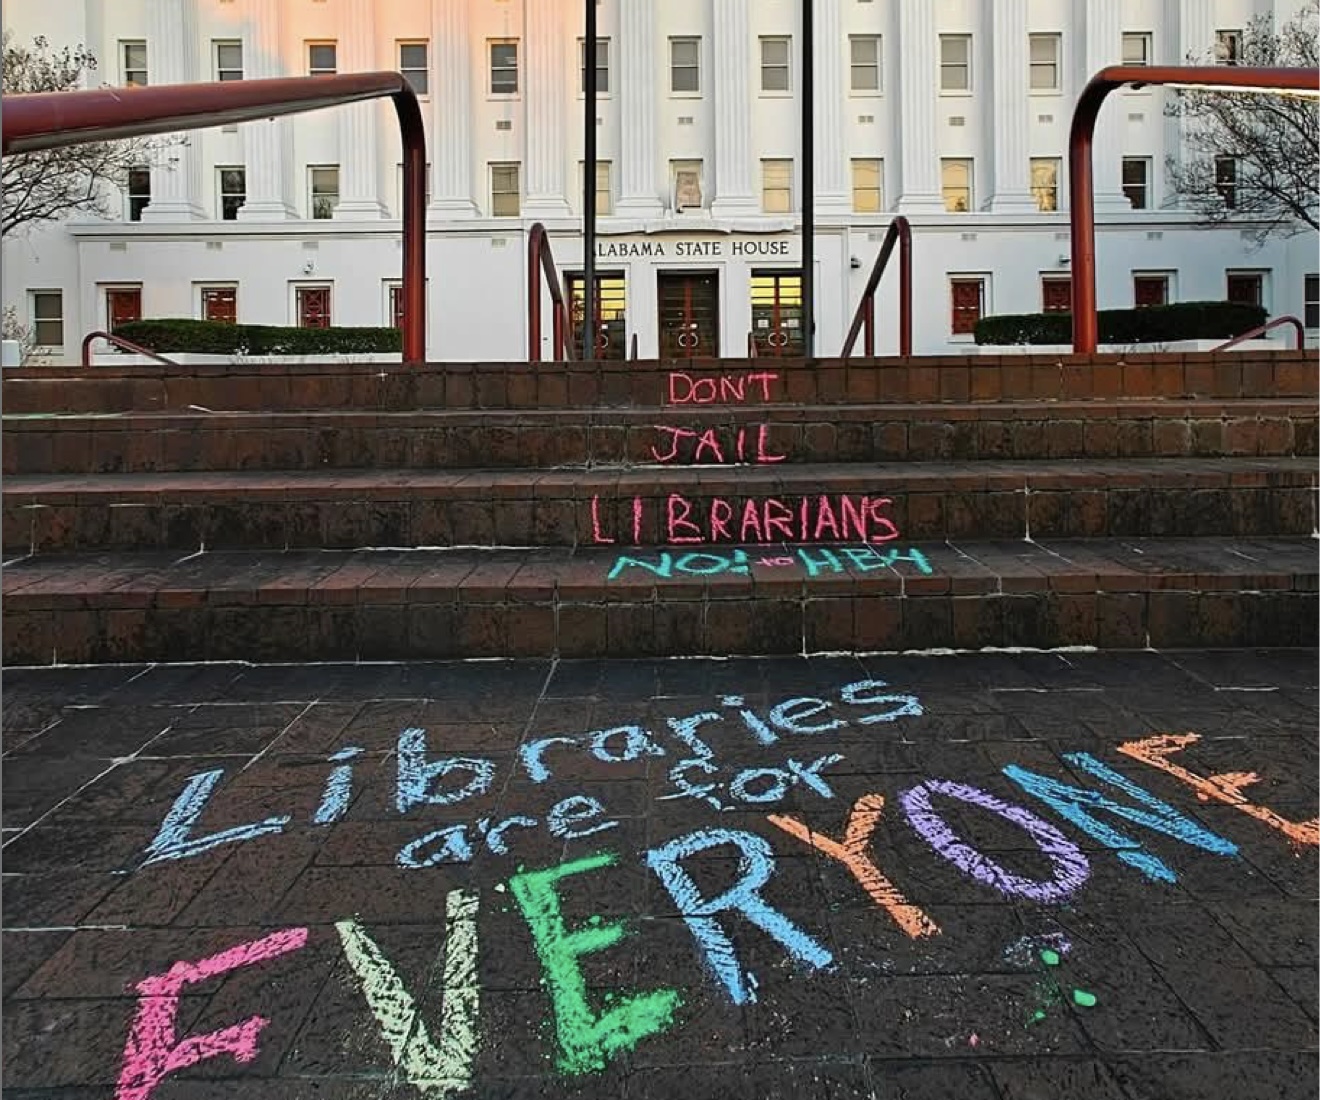 ALABAMA STATE HOUSE
DON'T
JAIL
LIBRARIANS
NO! to HB4
Libraries
are for
EVERYONE